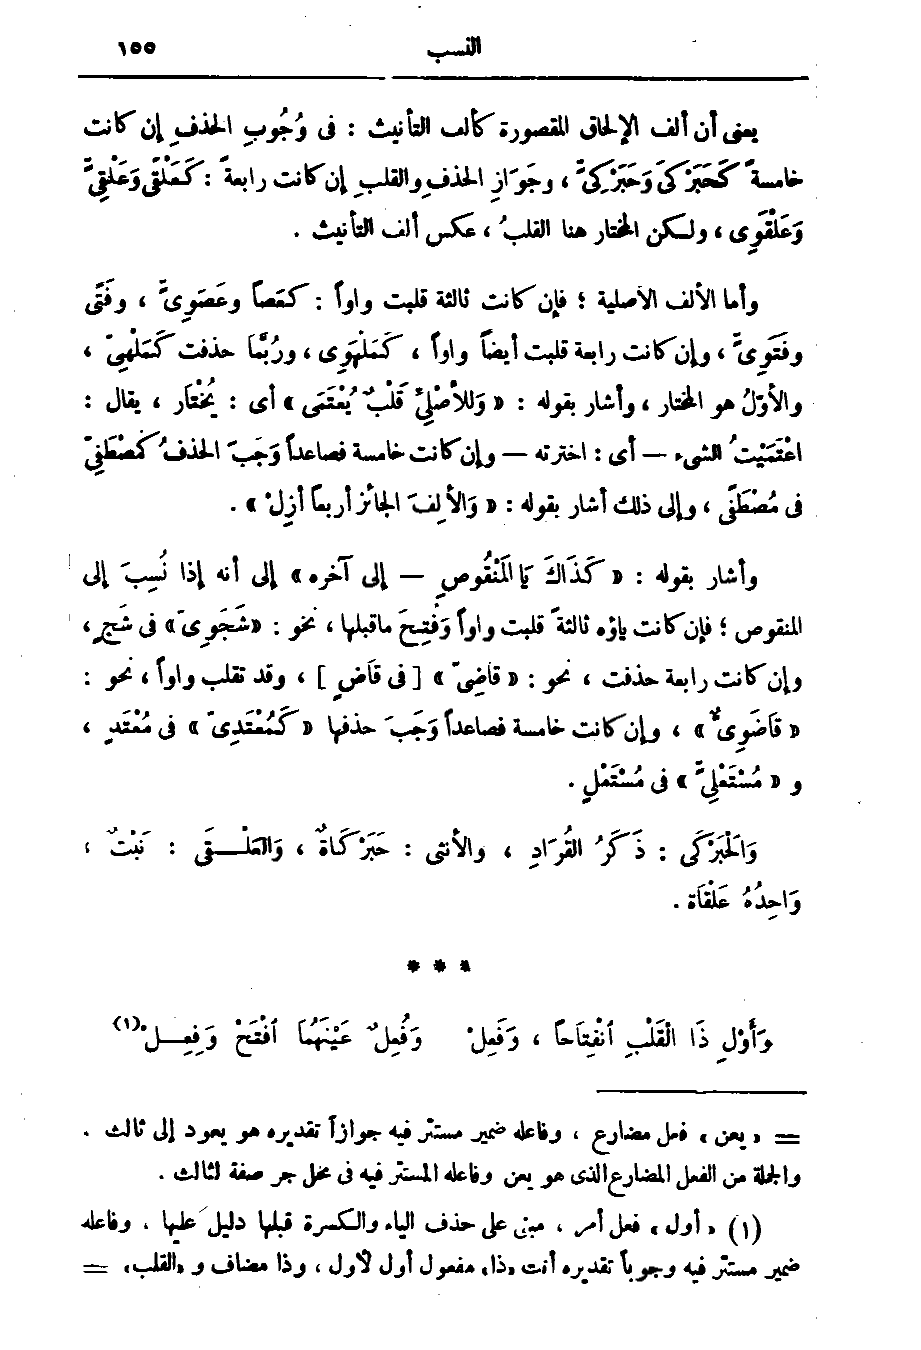 النسب ١٥٥
يعنى أن ألف الإلحاق المقصورة كألف التأنيث : فى وُجُوبِ الحذفِ إن كانت
خامسةً كَحَبَرْكَى وَحَبَرْكِىٍّ ، وجَوَازِ الحذفِ والقلبِ إن كانت رابعةً : كَعَلْقًى وَعَلْقِىٍّ
وَعَلْقَوِى ، ولكن المختار هنا القلبُ ، عكس ألف التأنيث .
وأما الألف الأصلية ؛ فإن كانت ثالثة قلبت واواً : كعَصاً وعَصَوِىٍّ ، وفَتًى
وفَتَوِىٍّ ، وإن كانت رابعة قلبت أيضاً واواً ، كَمَلْهَوِى ، ورُبَّمَا حذفت كَمَلْهِىّ ،
والأوّلُ هو المختار ، وأشار بقوله : « وَللأصْلِىِّ قَلْبٌ يُعْتَمَى » أى : يُخْتَار ، يقال :
اعْتَمَيْتُ الشىء — أى : اخترته — وإن كانت خامسة فصاعداً وَجَبَ الحذفُ كَمُصْطَفِىّ
فى مُصْطَفًى ، وإلى ذلك أشار بقوله : « وَالألِفَ الجائز أربعاً أزِلْ » .
وأشار بقوله : « كَذَاكَ يَا المَنْقُوصِ — إلى آخره » إلى أنه إذا نُسِبَ إلى
المنقوص ؛ فإن كانت ياؤه ثالثةً قلبت واواً وَفُتِحَ ماقبلها ، نحو : « شَجَوِىّ » فى شَجٍ ،
وإن كانت رابعة حذفت ، نحو : « قاَضِىّ » [ فى قاَضٍ ] ، وقد تقلب واواً ، نحو :
« قاَضَوِىٌّ » ، وإن كانت خامسة فصاعداً وَجَبَ حذفها « كَمُعْتَدِىّ » فى مُعْتَدٍ ،
و « مُسْتَعْلِىٍّ » فى مُسْتَعْلٍ .
وَالحَبَرْكَى : ذَكَرُ القُرَادِ ، والأنثى : حَبَرْكَاةٌ ، وَالعَلْـقَى : نَبْتٌ ،
وَاحِدُهُ عَلْقَاة .
* * *
وَأَوْلِ ذَا الْقَلْبِ اُنْفِتَاحاً ، وَفَعِلْ وَفُعِلٌ عَيْنَهُمَا اُفْتَحْ وَفِعِـلْ (١)
= « يعن » فعل مضارع ، وفاعله ضمير مستتر فيه جوازاً تقديره هو يعود إلى ثالث .
والجملة من الفعل المضارع الذى هو يعن وفاعله المستتر فيه فى محل جر صفة لثالث .
(١) « أول » فعل أمر ، مبنى على حذف الياء والكسرة قبلها دليل عليها ، وفاعله
ضمير مستتر فيه وجوباً تقديره أنت «ذا» مفعول أول لأول ، وذا مضاف و «القلب» =